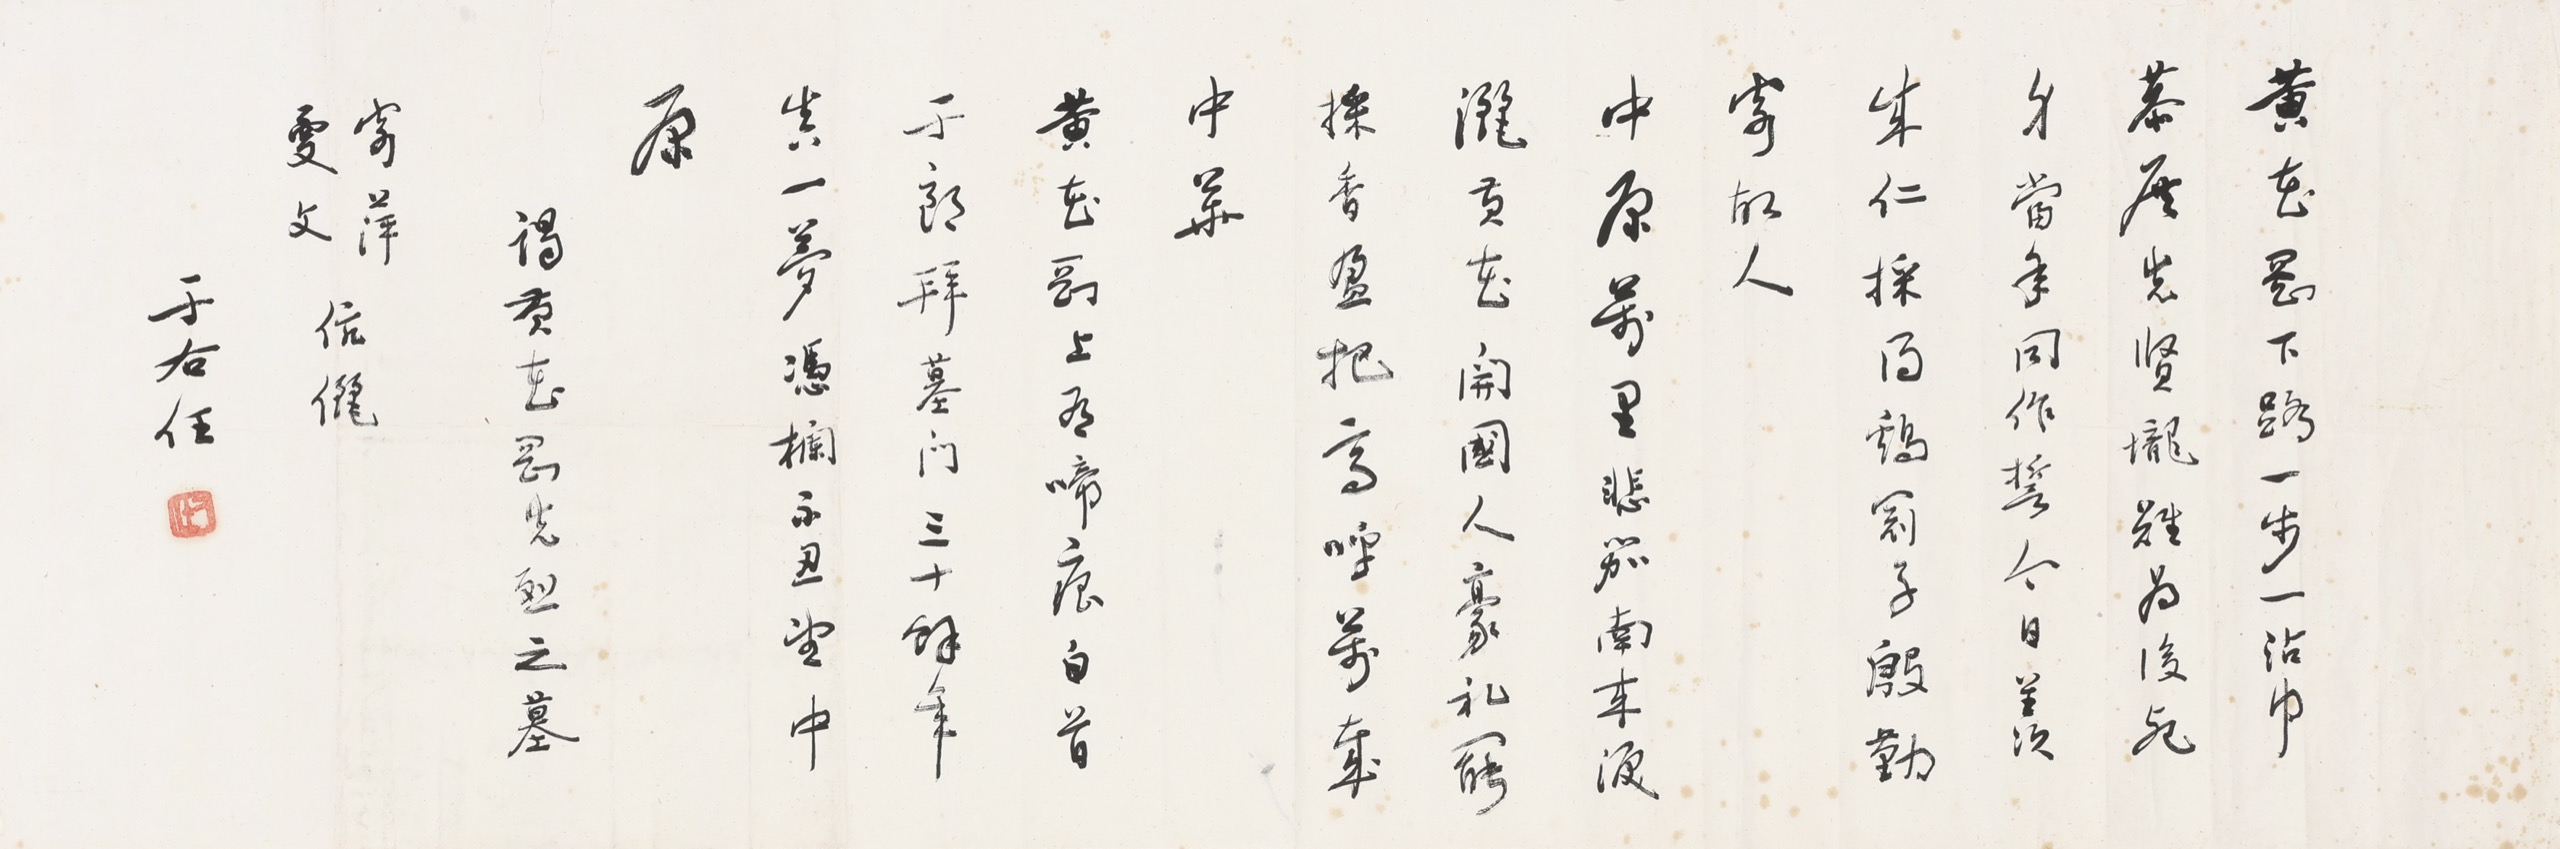 黃花岡下路一步一沾巾
恭展先賢壠難為後死
身當年同作誓今日羨
成仁採得鷄冠子殷勤
寄故人
中原萬里悲笳南來淚
灑黃花開國人豪禮罷
採香盈把高呼萬歲
中華
黃花岡上有啼痕白首
于郎拜墓門三十餘年
真一夢憑欄不忍望中
原
謁黃花岡先烈之墓
寄萍
雯文 伉儷
于右任